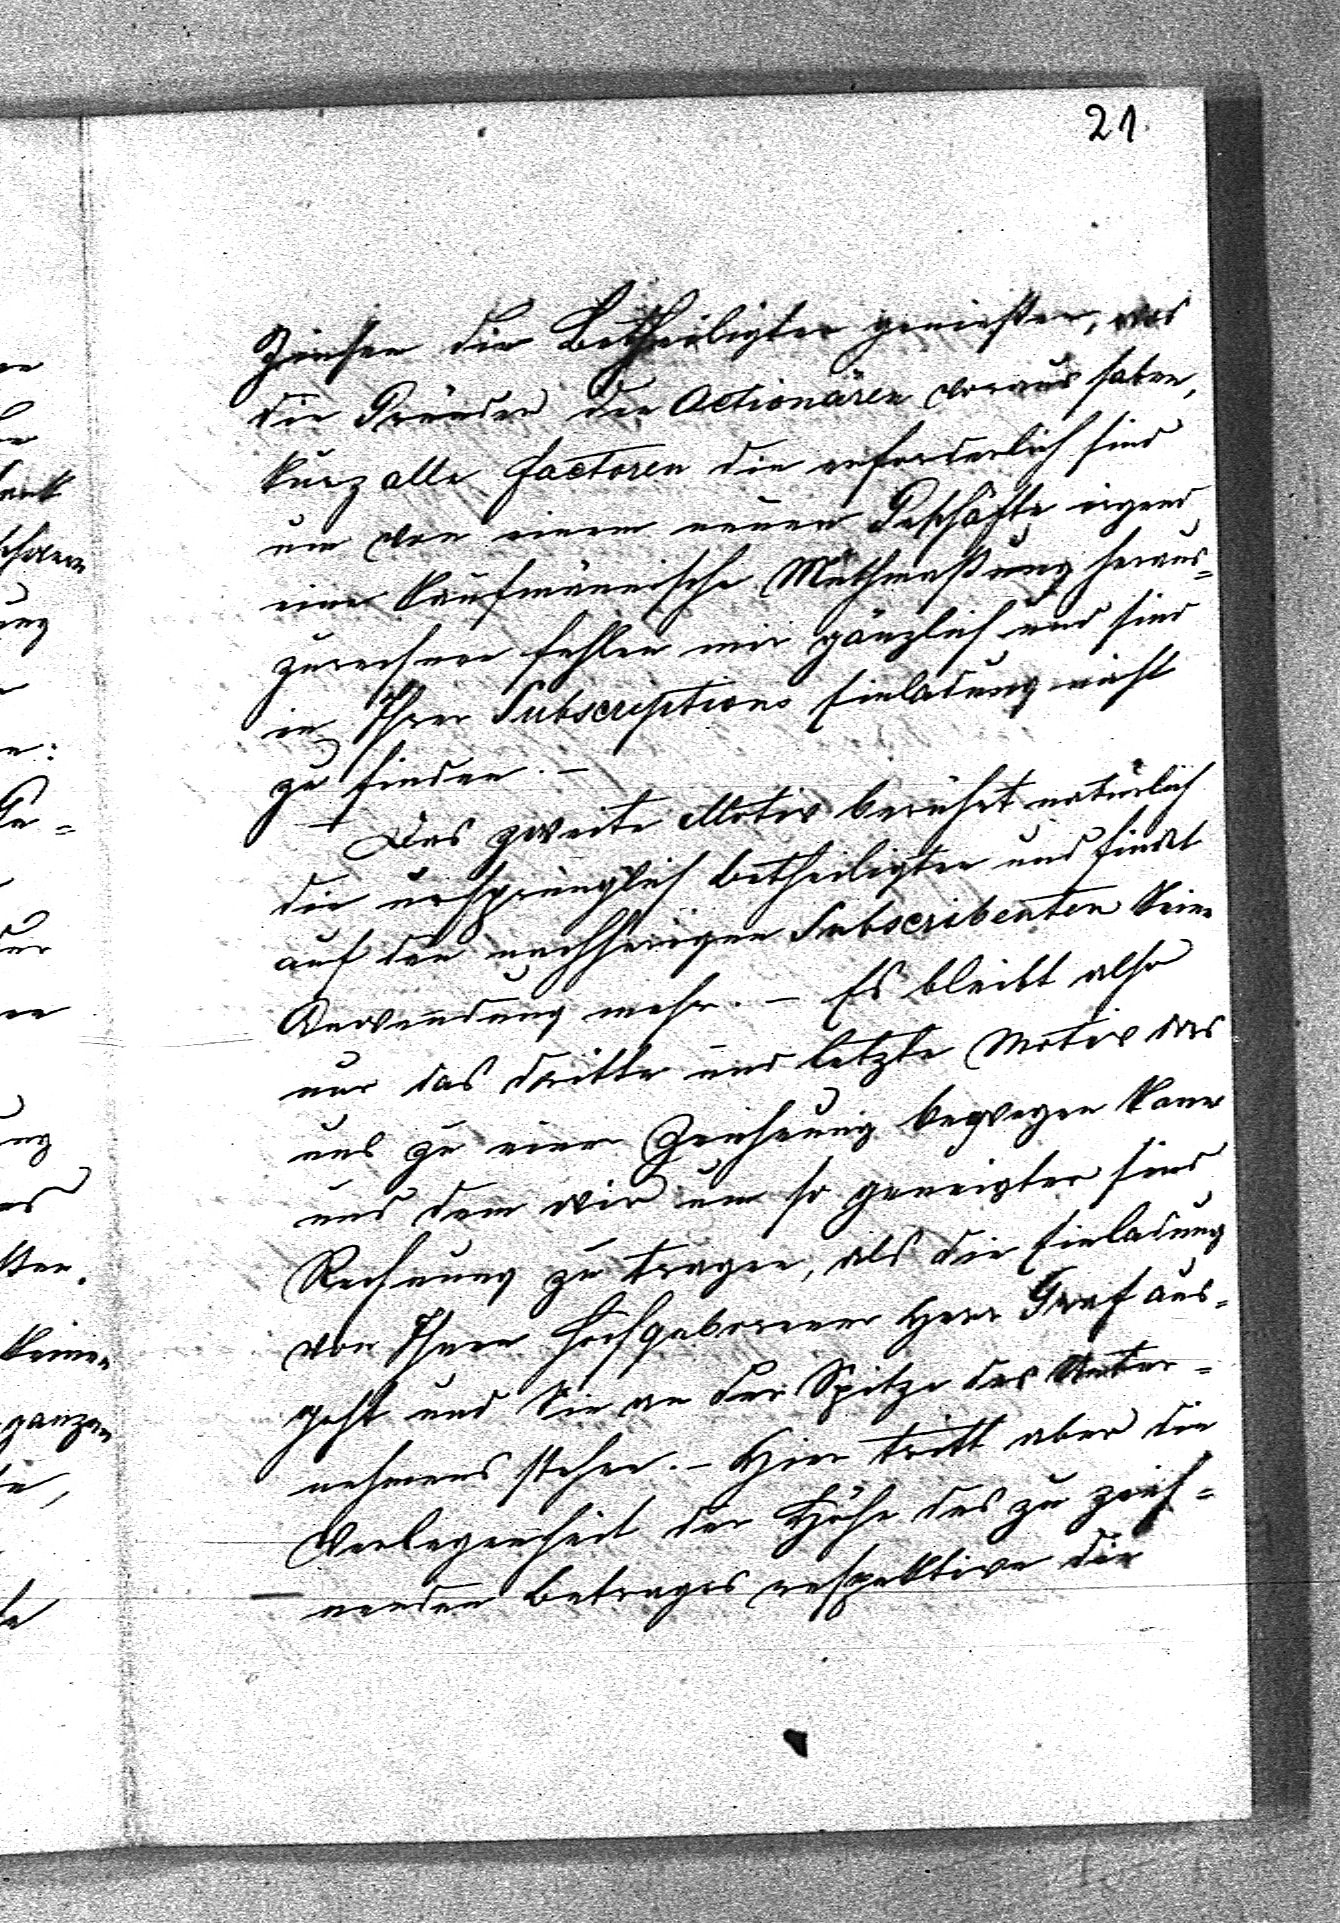 21
Zinsen die Betheiligten genießen, was
die Gründer den Actionären voraus haben,
kurz alle Factoren die erforderlich sind
um von einem neuen Geschäfte irgend
eine kaufmännische Muthmaßung heraus=
zurechnen fehlen mir gänzlich und sind
in Ihrer Subscriptions Einladung nicht
zu finden. –
Das zweite Motiv berührt natürlich
die ursprünglich Betheiligten und findet
auf den nachherigen Subscribenten keine
Anwendung mehr. – Es bleibt also
nur das dritte und letzte Motiv das
uns zu einer Zeichnung bewegen kann
und dem wir um so geneigter sind
Rechnung zu tragen, als die Einladung
von Ihnen Hochgeborener Herr Graf aus=
geht und Sie an der Spitze des Unter=
nehmens stehen. – Hier tritt aber die
Verlegenheit der Höhe des zu zeich=
nenden Betrages respektive die